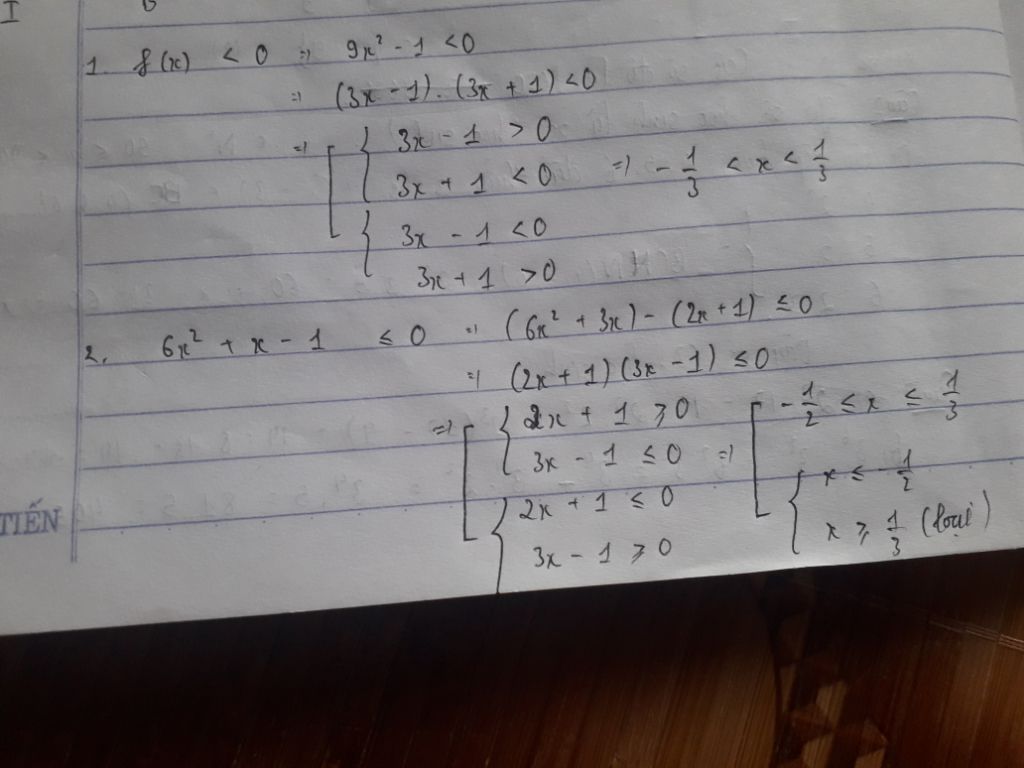 I
1. f(x) < 0 => 9x² - 1 < 0
=> (3x - 1).(3x + 1) < 0
=> [ { 3x - 1 > 0
3x + 1 < 0 => -1/3 < x < 1/3
{ 3x - 1 < 0
3x + 1 > 0
2. 6x² + x - 1 ≤ 0 => (6x² + 3x) - (2x + 1) ≤ 0
=> (2x + 1)(3x - 1) ≤ 0
=> [ { 2x + 1 ≥ 0
3x - 1 ≤ 0 => [ -1/2 ≤ x ≤ 1/3
{ 2x + 1 ≤ 0 { x ≤ -1/2
3x - 1 ≥ 0 x ≥ 1/3 (loại)
TIẾN